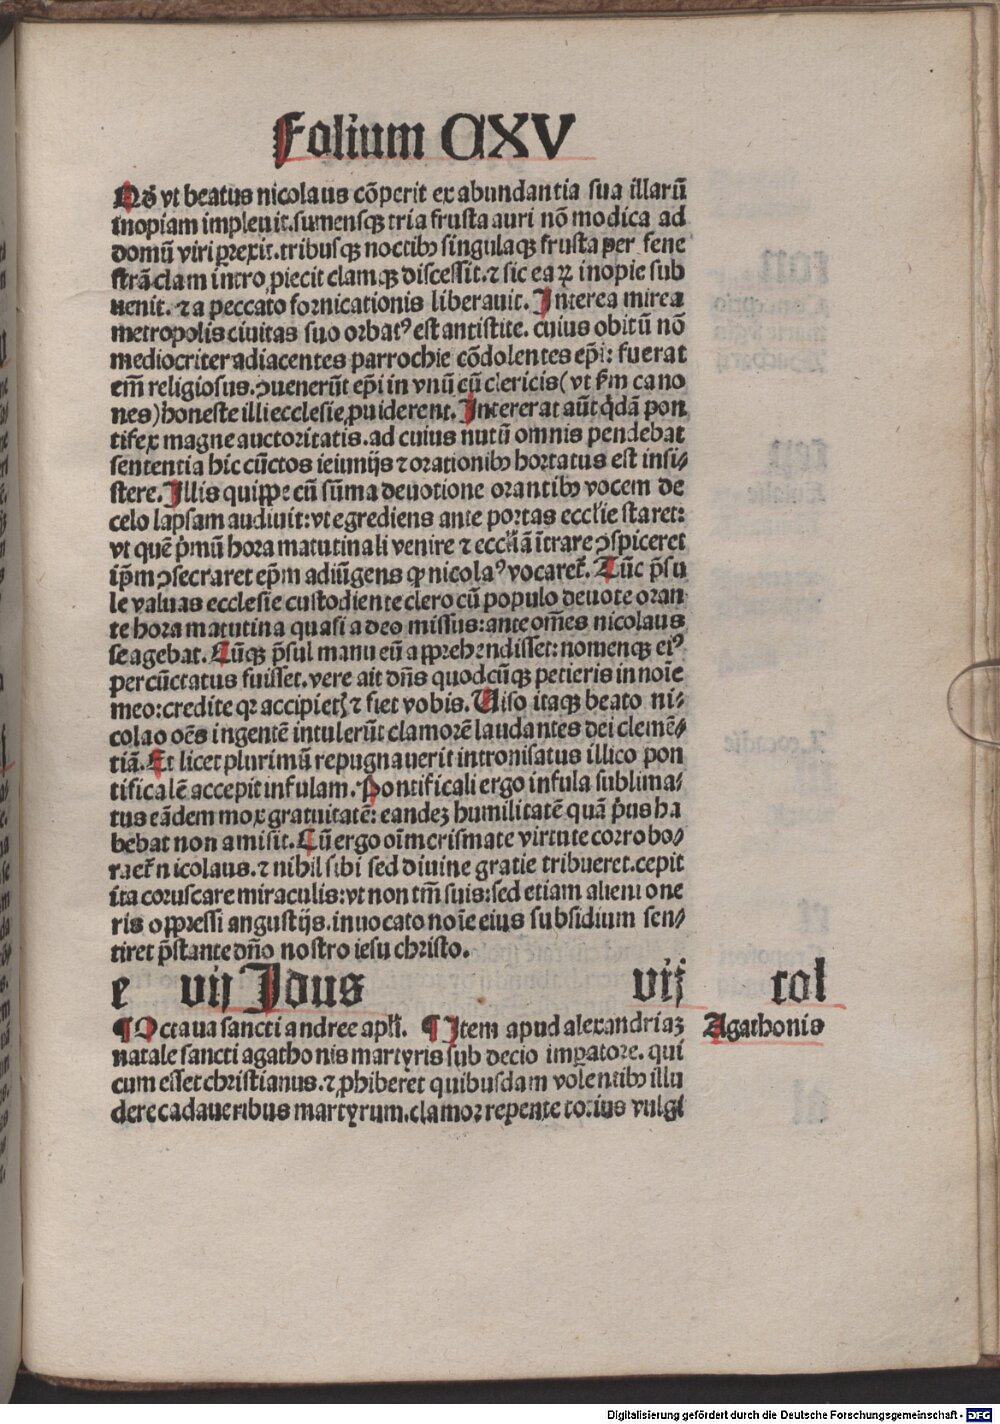 Folium CXV
Qđ vt beatus nicolaus cōperit ex abundantia sua illarū
inopiam impleuit. sumensqꝫ tria frusta auri nō modica ad
domū viri ꝑrexit. tribusqꝫ noctibꝰ singulaqꝫ frusta per fene
strā clam intro ꝓiecit clamqꝫ discessit. ⁊ sic eaꝝ inopie sub
uenit. ⁊ a peccato fornicationis liberauit. Interea mirea
metropolis ciuitas suo orbatꝰ est antistite. cuius obitū nō
mediocriter adiacentes parrochie cōdolentes ep̄i: fuerat
em̄ religiosus. ꝯuenerūt ep̄i in vnū cū clericis (vt ẜm cano
nes) honeste illi ecclesie ꝓuiderent. Intererat aūt q̇dā pon
tifex magne auctoritatis. ad cuius nutū omnis pendebat
sententia hic cūctos ieiunijs ⁊ orationibꝰ hortatus est insi⸗
stere. Illis quippe cū sūma deuotione orantibꝰ vocem de
celo lapsam audiuit: vt egrediens ante portas eccl̄ie staret:
vt quē p̄mū hora matutinali venire ⁊ eccl̄iā ītrare ꝯspiceret
ip̄m ꝯsecraret ep̄m adiūgens ꝙ nicolaꝰ vocaret̄. Tūc p̄su
le valuas ecclesie custodiente clero cū populo deuote oran
te hora matutina quasi a deo missus: ante om̄es nicolaus
se agebat. Cūqꝫ p̄sul manu eū apprehendisset: nomenqꝫ eiꝰ
percūctatus fuisset. vere ait dn̄s quodcūqꝫ petieris in noīe
meo: credite qꝛ accipietꝭ ⁊ fiet vobis. Uiso itaqꝫ beato ni⸗
colao oēs ingentē intulerūt clamorē laudantes dei clemē⸗
tiā. Et licet plurimū repugnauerit intronisatus illico pon
tificalē accepit infulam. Pontificali ergo infula sublima⸗
tus eādem mox gratuitatē: eandeꝫ humilitatē quā p̄us ha
bebat non amisit. Cū ergo oīm crismate virtute corrobo⸗
raret̄ nicolaus. ⁊ nihil sibi sed diuine gratie tribueret. cepit
ita coruscare miraculis: vt non tm̄ suis: sed etiam alieni one
ris oppressi angustijs. inuocato noīe eius subsidium sen⸗
tiret p̄stante dn̄o nostro iesu christo.
e vij Idus vij col
¶ Octaua sancti andree apl̄i. ¶ Item apud alexandriaꝫ Agathonis
natale sancti agathonis martyris sub decio imꝑatore. qui
cum esset christianus. ⁊ ꝓhiberet quibusdam volentibꝰ illu
dere cadaueribus martyrum. clamor repente totius vulgi
Digitalisierung gefördert durch die Deutsche Forschungsgemeinschaft - DFG